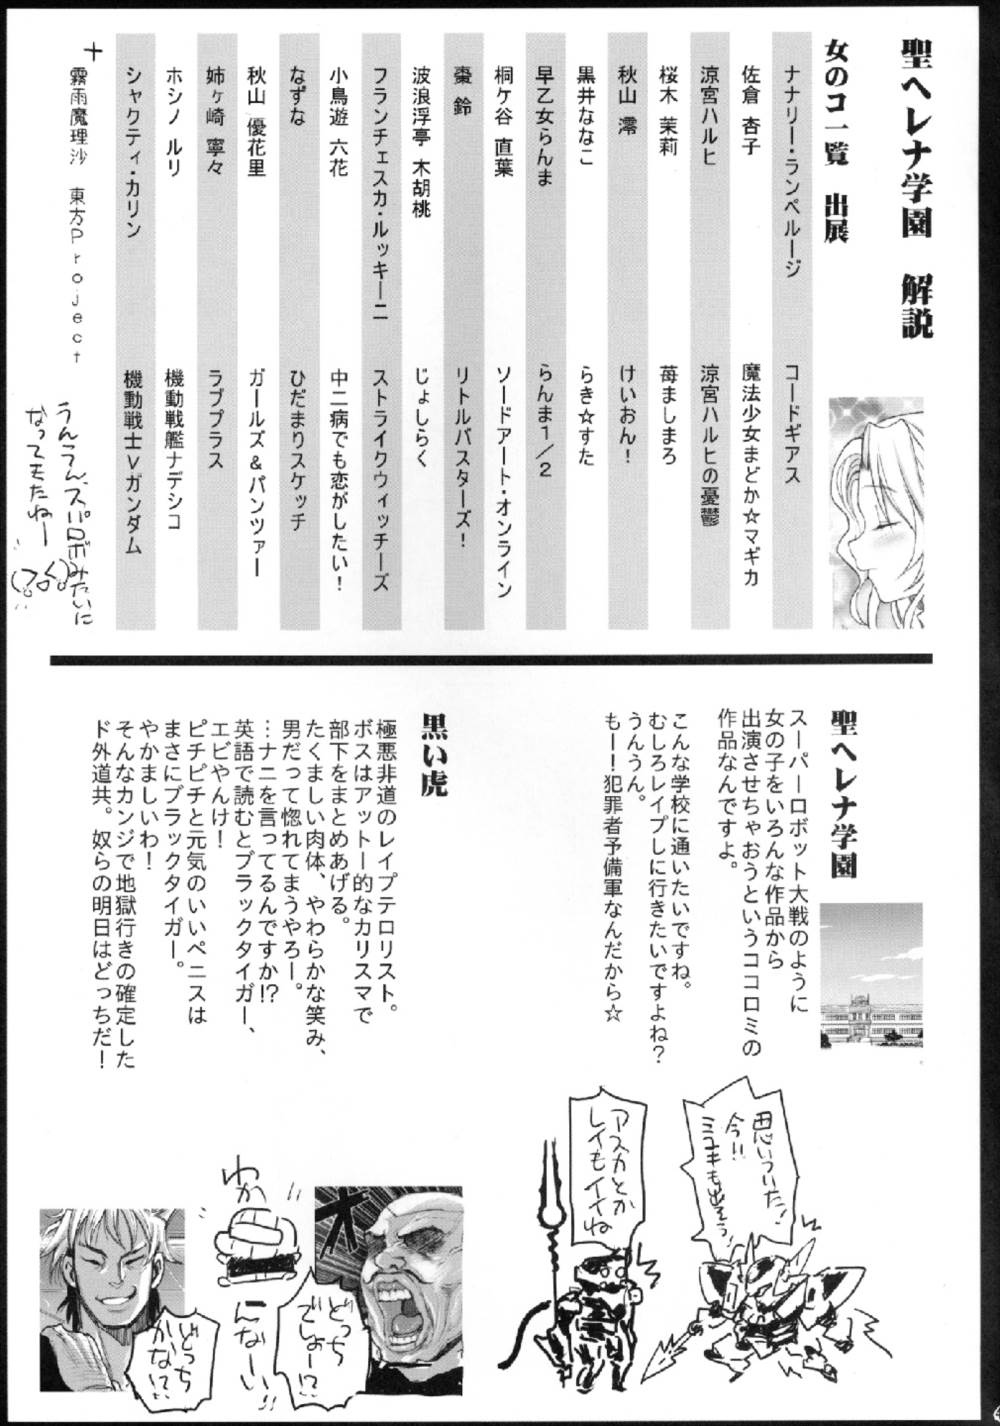 聖ヘレナ学園 解説
女のコ一覧 出展
ナナリー・ランペルージ コードギアス
佐倉 杏子 魔法少女まどか☆マギカ
涼宮ハルヒ 涼宮ハルヒの憂鬱
桜木 茉莉 苺ましまろ
秋山 澪 けいおん!
黒井ななこ らき☆すた
早乙女らんま らんま1/2
桐ケ谷 直葉 ソードアート・オンライン
棗 鈴 リトルバスターズ!
波浪浮亭 木胡桃 じょしらく
フランチェスカ・ルッキーニ ストライクウィッチーズ
小鳥遊 六花 中二病でも恋がしたい!
なずな ひだまりスケッチ
秋山 優花里 ガールズ&パンツァー
姉ヶ崎 寧々 ラブプラス
ホシノ ルリ 機動戦艦ナデシコ
シャクティ・カリン 機動戦士Vガンダム
+
霧雨魔理沙 東方Project
うんうん、スパロボみたいに
なってキたねー
聖ヘレナ学園
スーパーロボット大戦のように
女の子をいろんな作品から
出演させちゃおうというココロミの
作品なんですよ。
こんな学校に通いたいですね。
むしろレイプしに行きたいですよね?
うんうん。
もー!犯罪者予備軍なんだから☆
黒い虎
極悪非道のレイプテロリスト。
ボスはアットー的なカリスマで
部下をまとめあげる。
たくましい肉体、やわらかな笑み、
男だって惚れてまうやろー。
…ナニを言ってるんですか!?
英語で読むとブラックタイガー、
エビやんけ!
ピチピチと元気のいいペニスは
まさにブラックタイガー。
やかましいわ!
そんなカンジで地獄行きの確定した
ド外道共。奴らの明日はどっちだ!
思いついた!
今!!
ミユキも出そう!
アスカとか
レイもイイね
わか
んなーい
どっち
でしょー!?
どっち
かな!?